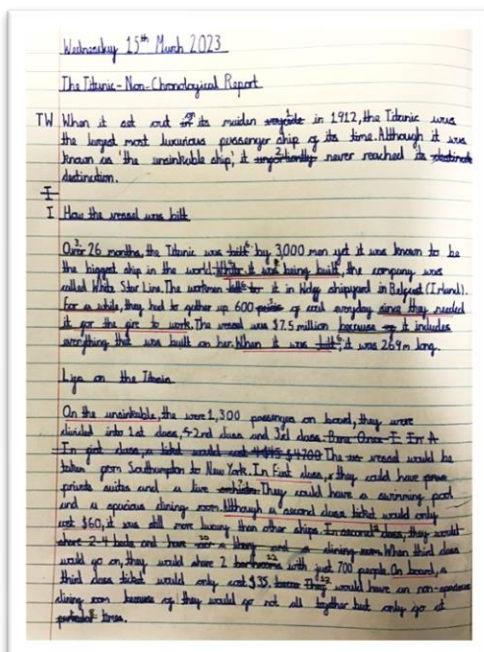 Wednesday 15th March 2023
The Titanic - Non-Chronological Report
TW When it set out its maiden in 1912, the Titanic was
the largest most luxurious passenger ship of its time. Although it was
known as 'the unsinkable ship', it never reached its
destination.
I
I How the vessel was bilt
Over 26 months, the Titanic was by 3,000 men yet it was known to be
the biggest ship in the world. it was being built, the company was
called White Star Line. The workmen it in shipyard in Belfast (Irland).
For a while, they had to gather up 600 of coal everyday since they needed
it for the fire to work. The vessel was $7.5 million because it includes
everything that was built on her. When it was, it was 269m long.
Life on the Titanic
On the unsinkable, the were 1,300 passenges on board, they were
divided into 1st class, 2nd class and 3rd class.
In first class, a ticket would cost $4700 The vessel would be
taken from Southampton to New York. In First class, they could have
private suites and a live They could have a swimming pool
and a spacious dining room. Although a second class ticket would only
cost $60, it was still more luxury than other ships. In second class, they would
share 2-4 beds and have a library and a dining room. When third class
would go on, they would share 2 with just 700 people. On board, a
third class ticket would only cost $35. They would have an non-spacious
dining room because they would go not all together but only go at
times.